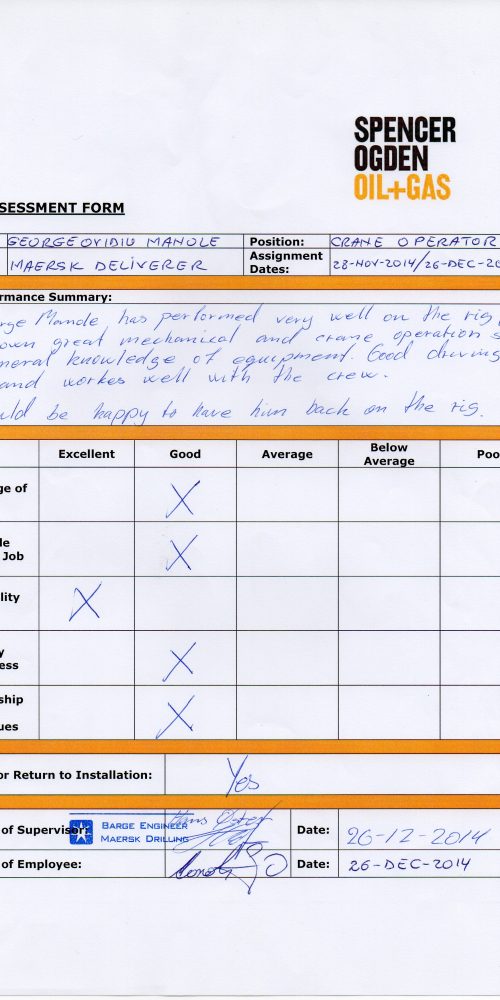 SPENCER
OGDEN
OIL+GAS
SESSMENT FORM
GEORGE OVIDIU MANOLE Position: CRANE OPERATOR
MAERSK DELIVERER Assignment Dates: 28-NOV-2014/26-DEC-20
rmance Summary:
rge Manole has performed very well on the rig
own great mechanical and crane operation s
neral knowledge of equipment. Good driving
and workes well with the crew.
uld be happy to have him back on the rig.
Excellent Good Average Below Average Poo
ge of X
le
Job X
lity X
y
ess X
ship
ues X
or Return to Installation: Yes
of Supervisor: BARGE ENGINEER MAERSK DRILLING Date: 26-12-2014
of Employee: Date: 26-DEC-2014